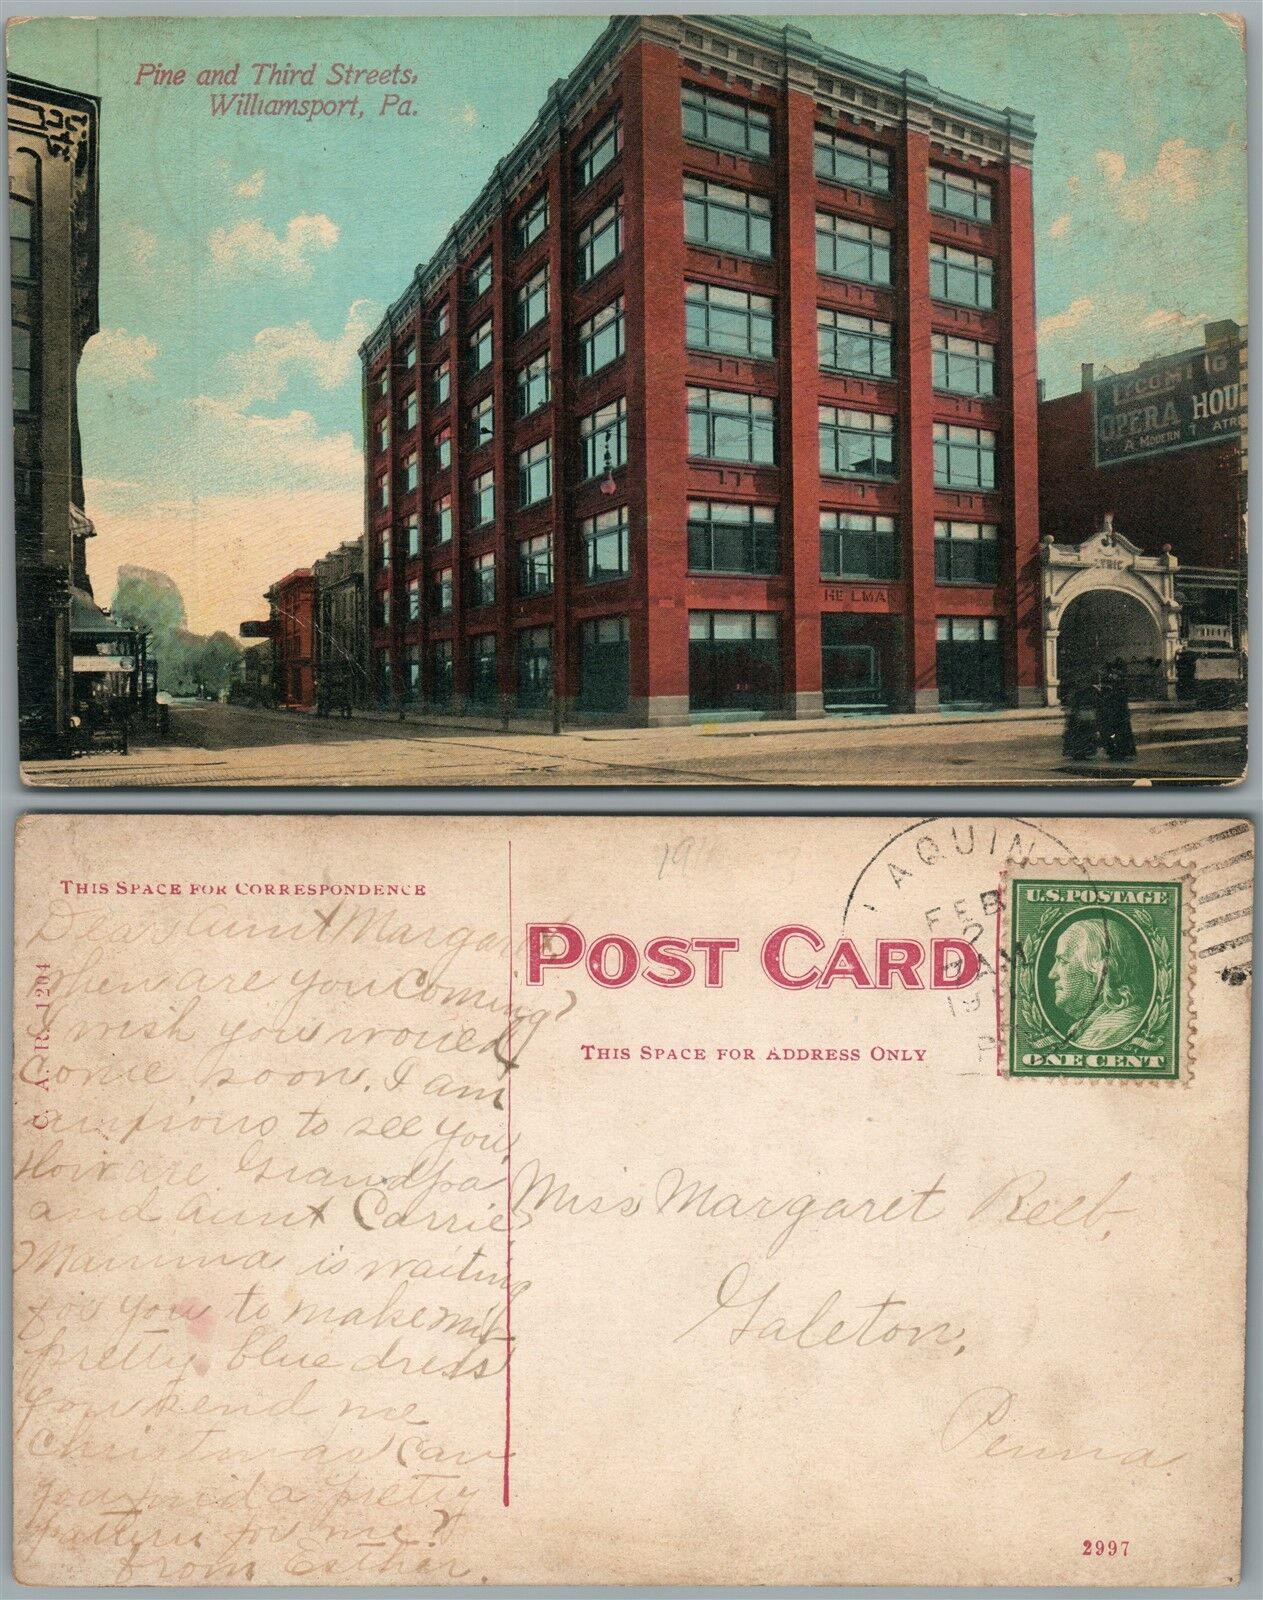 Pine and Third Streets,
Williamsport, Pa.
OPERA HOU
A MODERN T ATR
LYRIC
HELMAN
THIS SPACE FOR CORRESPONDENCE
C. A. R. 1204
Dear Aunt Margaret
when are you coming?
I wish you would
come soon. I am
anxious to see you,
How are Grandpa
and Aunt Carrie?
Mamma is waiting
for you to make my
pretty blue dress
you send me
Christmas Can
you find a pretty
pattern for me?
from Esther.
POST CARD
THIS SPACE FOR ADDRESS ONLY
AQUIN
FEB
2
7 AM
U.S. POSTAGE
ONE CENT
Miss Margaret Reeb,
Galeton,
Penna.
2997